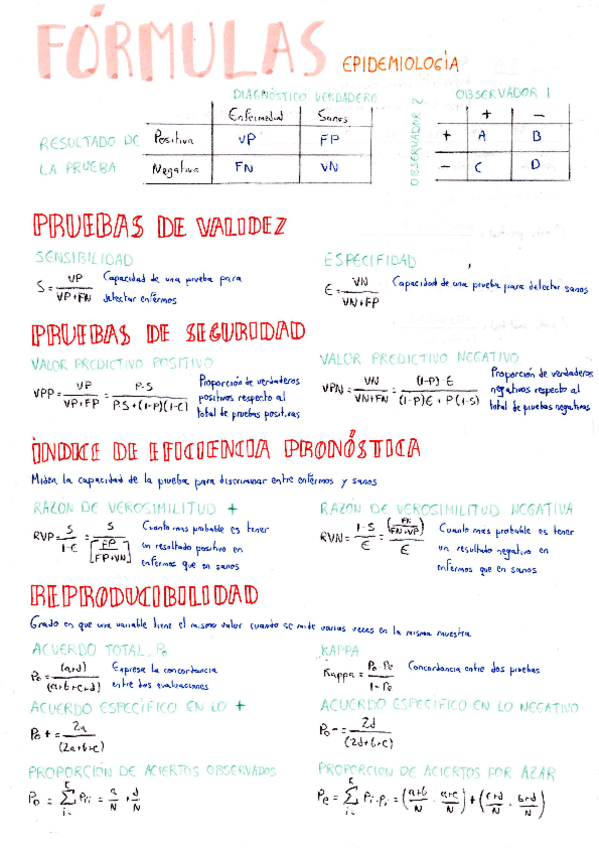 FÓRMULAS EPIDEMIOLOGÍA
DIAGNÓSTICO VERDADERO
Enfermedad Sanos
RESULTADO DE LA PRUEBA
Positiva VP FP
Negativa FN VN
OBSERVADOR 1
OBSERVADOR 2
+ -
+ A B
- C D
PRUEBAS DE VALIDEZ
SENSIBILIDAD
S = VP / VP+FN
Capacidad de una prueba para
detectar enfermos
ESPECIFIDAD
E = VN / VN+FP
Capacidad de una prueba para detectar sanos
PRUEBAS DE SEGURIDAD
VALOR PREDICTIVO POSITIVO
VPP = VP / VP+FP = P·S / P·S+(1-P)(1-E)
Proporción de verdaderos
positivos respecto al
total de pruebas positivas
VALOR PREDICTIVO NEGATIVO
VPN = VN / VN+FN = (1-P) E / (1-P)E + P(1-S)
Proporción de verdaderos
negativos respecto al
total de pruebas negativas
ÍNDICE DE EFICIENCIA PRONÓSTICA
Miden la capacidad de la prueba para discriminar entre enfermos y sanos
RAZÓN DE VEROSIMILITUD +
RVP = S / 1-E = S / [FP / FP+VN]
Cuanto mas probable es tener
un resultado positivo en
enfermos que en sanos
RAZÓN DE VEROSIMILITUD NEGATIVA
RVN = 1-S / E = (FN / FN+VP) / E
Cuanto mas probable es tener
un resultado negativo en
enfermos que en sanos
REPRODUCIBILIDAD
Grado en que una variable tiene el mismo valor cuando se mide varias veces en la misma muestra
ACUERDO TOTAL, Po
Po = (a+d) / (a+b+c+d)
Expresa la concordancia
entre dos evaluaciones
KAPPA
Kappa = Po-Pe / 1-Pe
Concordancia entre dos pruebas
ACUERDO ESPECÍFICO EN LO +
Po+ = 2a / (2a+b+c)
ACUERDO ESPECÍFICO EN LO NEGATIVO
Po- = 2d / (2d+b+c)
PROPORCIÓN DE ACIERTOS OBSERVADOS
Po = Σ Pii = a/N + d/N
PROPORCION DE ACIERTOS POR AZAR
Pe = Σ Pi·Pi = (a+b/N · a+c/N) + (c+d/N · b+d/N)